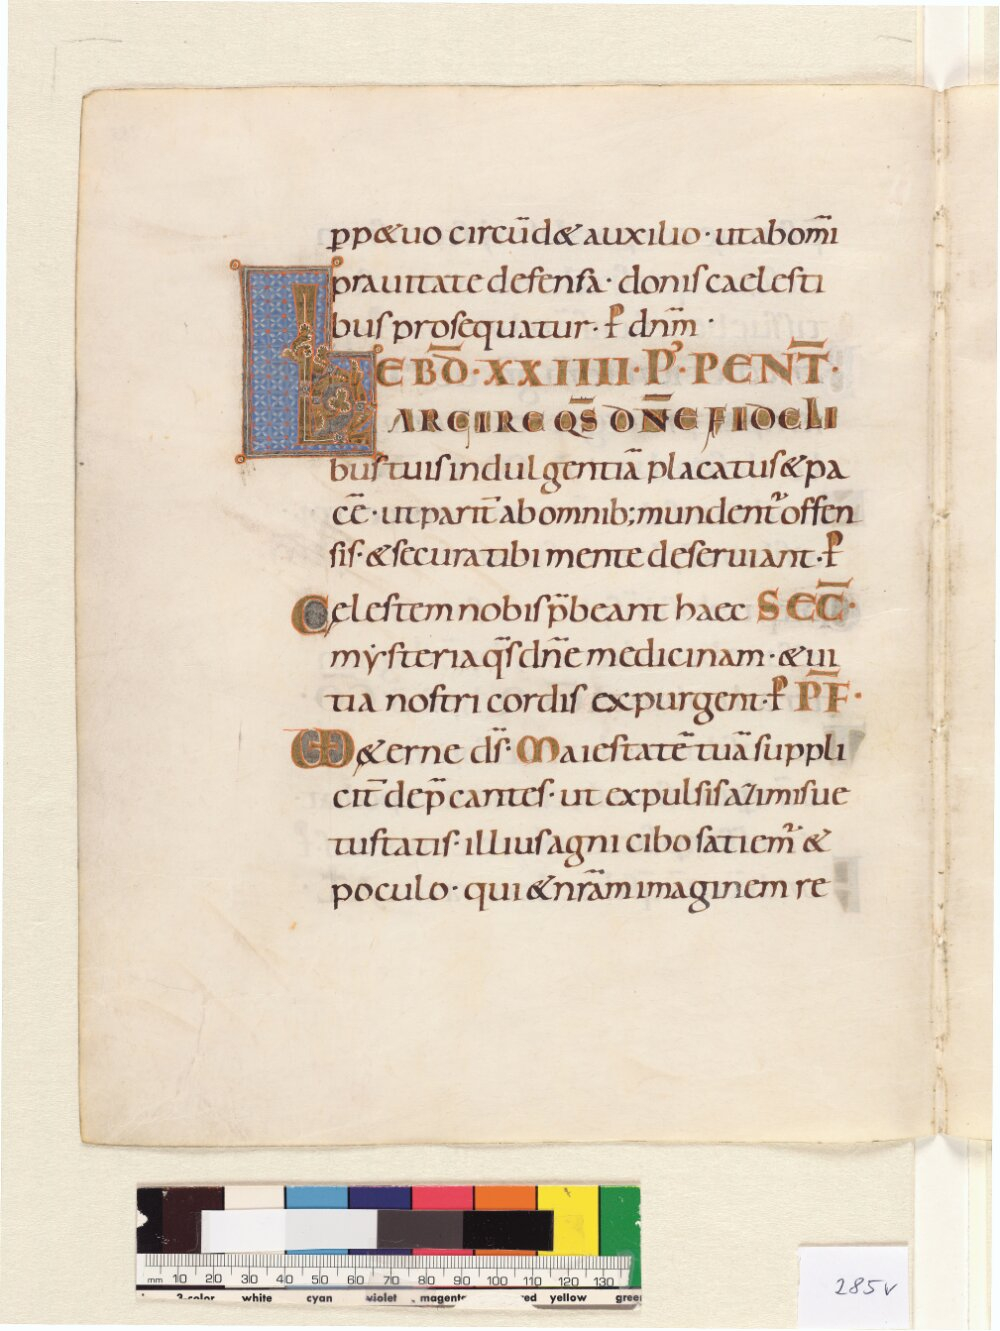 pp&uo circūd& auxilio· utabom̄i
prauitate defensa· donis caelesti
bus prosequatur· P̄ dn̄m·
EBD̄·XXIIII·P'·PENT̄·
LARGIRE QS̄ DN̄E FIDELI
bus tuis indulgentiā placatus & pa
cē· ut parit̄ ab omnib; mundent^r offen
sis· & secura tibi mente deseruiant· P̄
Celestem nobis p̄beant haec SEC̄·
mẏsteria qs̄ dn̄e medicinam· & ui
tia nostri cordis expurgent· P̄ PF̄·
VD &erne ds̄· Maiestatē tuā suppli
cit̄ dep̄cantes· ut expulsis azimis ue
tustatis· illius agni cibo satiem^r &
poculo· qui & nr̄am imaginem re
mm 10 20 30 40 50 60 70 80 90 100 110 120 130
3-color white cyan violet magenta red yellow green
285v